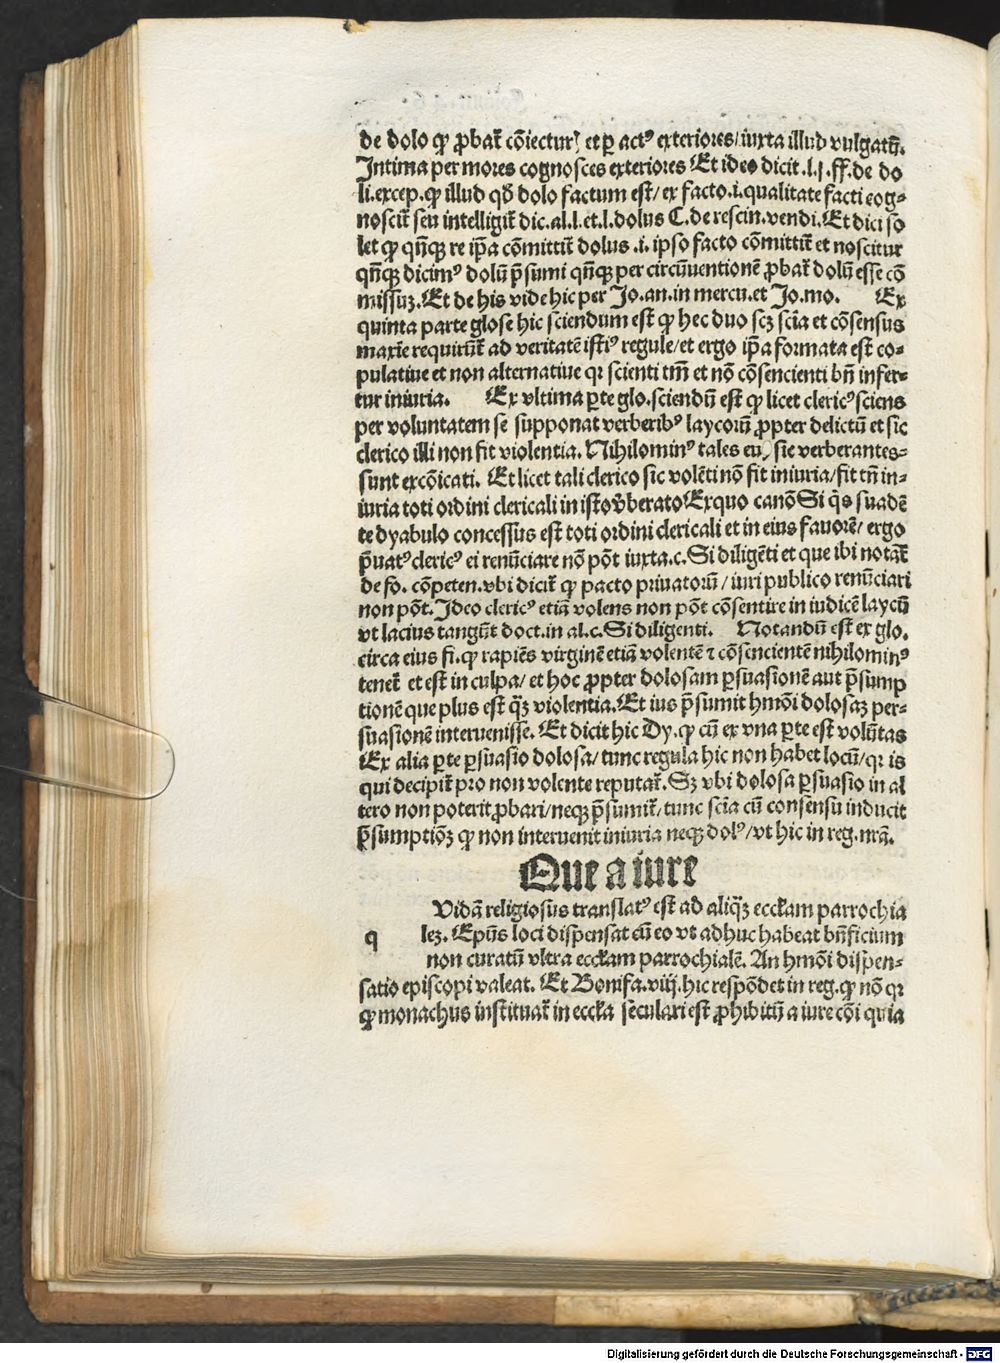 de dolo ꝙ ꝓbat᷑ cõiecturꝭ et ꝑ actꝰ exteriores/iuxta illud vulgatũ.
Intima per mores cognosces exteriores Et ideo dicit.l.j.ff.de do
li.excep.ꝙ illud qđ dolo factum est/ex facto.i.qualitate facti cog⸗
noscit᷑ seu intelligit᷑ dic.al.l.et.l.dolus C.de rescin.vendi.Et dici so
let ꝙ qñqꝫ re ip̃a cõmittit᷑ dolus .i. ipso facto cõmittit᷑ et noscitur
qñqꝫ dicimꝰ dolũ p̃sumi qñqꝫ per circũuentionẽ ꝓbat᷑ dolũ esse cõ
missuꝫ.Et de his vide hic per Jo.an.in mercu.et Jo.mo. Ex
quinta parte glose hic sciendum est ꝙ hec duo scꝫ scĩa et cõsensus
maxĩe requirũt᷑ ad veritatẽ istiꝰ regule/et ergo ip̃a formata est co⸗
pulatiue et non alternatiue qꝛ scienti tm̃ et nõ cõsencienti bñ infer⸗
tur iniuria. Ex vltima ꝑte glo.sciendũ est ꝙ licet clericꝰ sciens
per voluntatem se supponat verberibꝰ laycorũ ꝓpter delictũ et sic
clerico illi non fit violentia. Nihilominꝰ tales eũ sic verberantes⸗
sunt excõicati. Et licet tali clerico sic volẽti nõ fit iniuria/fit tñ in⸗
iuria toti ordini clericali in isto v̓berato Ex quo canõ Si q̃s suadẽ
te dyabulo concessus est toti ordini clericali et in eius fauorẽ/ ergo
p̃uatꝰ clericꝰ ei renũciare nõ põt iuxta.c.Si diligẽti et que ibi notat᷑
de fo. cõpeten.vbi dicit᷑ ꝙ pacto priuatorũ/ iuri publico renũciari
non põt.Ideo clericꝰ etiã volens non põt cõsentire in iudicẽ laycũ
vt lacius tangũt doct.in al.c.Si diligenti. Notandũ est ex glo.
circa eius fi.ꝙ rapiẽs virginẽ etiã volentẽ ⁊ cõsencientẽ nihilominꝰ
tenet᷑ et est in culpa/ et hoc ꝓpter dolosam ꝑsuasionẽ aut p̃sump
tionẽ que plus est q̃ꝫ violentia.Et ius p̃sumit hmõi dolosaꝫ per⸗
suasionẽ interuenisse. Et dicit hic Dy.ꝙ cũ ex vna ꝑte est volũtas
Ex alia ꝑte ꝑsuasio dolosa/tunc regula hic non habet locũ/qꝛ is
qui decipit᷑ pro non volente reputat᷑. Sꝫ vbi dolosa ꝑsuasio in al
tero non poterit ꝓbari/neqꝫ p̃sumit᷑/tunc scĩa cũ consensu inducit
p̃sumptiõꝫ ꝙ non interuenit iniuria neqꝫ dolꝰ/vt hic in reg.nr̃a.
Que a iure
Vidã religiosus translatꝰ est ad aliq̃ꝫ eccłam parrochia
q leꝫ. Epũs loci dispensat cũ eo vt adhuc habeat bñficium
non curatũ vltra eccłam parrochialẽ. An hmõi dispen⸗
satio episcopi valeat. Et Bonifa.viij.hic respõdet in reg.ꝙ nõ qꝛ
ꝙ monachus instituat᷑ in eccła seculari est ꝓhibitũ a iure cõi quia
Digitalisierung gefördert durch die Deutsche Forschungsgemeinschaft - DFG